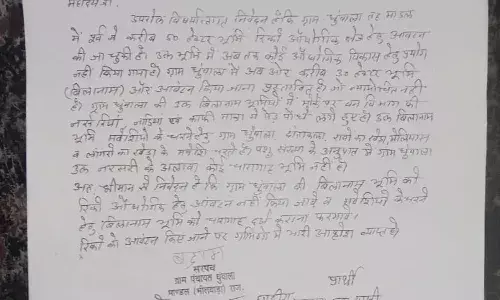 महोदय जी,
उपरोक्त विषयान्तर्गत निवेदन है कि ग्राम धुंवाला तह. माडल
में पूर्व में करीब 50 हेक्टर भूमि रिको औद्योगिक क्षेत्र हेतु आवंटन
की जा चुकी है। उक्त भूमि में अब तक कोई औद्योगिक विकास हेतु उपयोग
नहीं किया गया है। ग्राम धुंवाला में अब ओर करीब 30 हेक्टर भूमि
(बिलानाम) ओर आवंटन किया जाना प्रस्तावित है। जो न्यायोचित नहीं
है। ग्राम धुंवाला की उक्त बिलानाम भूमियों में मौके पर वन विभाग की
नर्सरियां, नाडिया एवं काफी मात्रा में पेड़ पौधे लगे हुए है। उक्त बिलानाम
भूमि मवेशियों के चरने हेतु ग्राम धुंवाला
के मवेशी चरते है। पशु संख्या के अनुपात में ग्राम धुंवाला
उक्त नरसरी के अलावा कोई चारागाह भूमि नहीं है।
अतः श्रीमान से निवेदन है कि ग्राम धुंवाला की बिलानाम भूमि को
रिको औद्योगिक हेतु आवंटन नहीं किया जावे व मवेशियों के चरने
हेतु बिलानाम भूमि को चारागाह दर्ज कराना फरमावे।
रिको को आवंटन किए जाने पर ग्रामिणों में भारी आक्रोश व्याप्त है।
सरपंच
ग्राम पंचायत धुंवाला
माण्डल (भीलवाड़ा) राज.
प्रार्थी